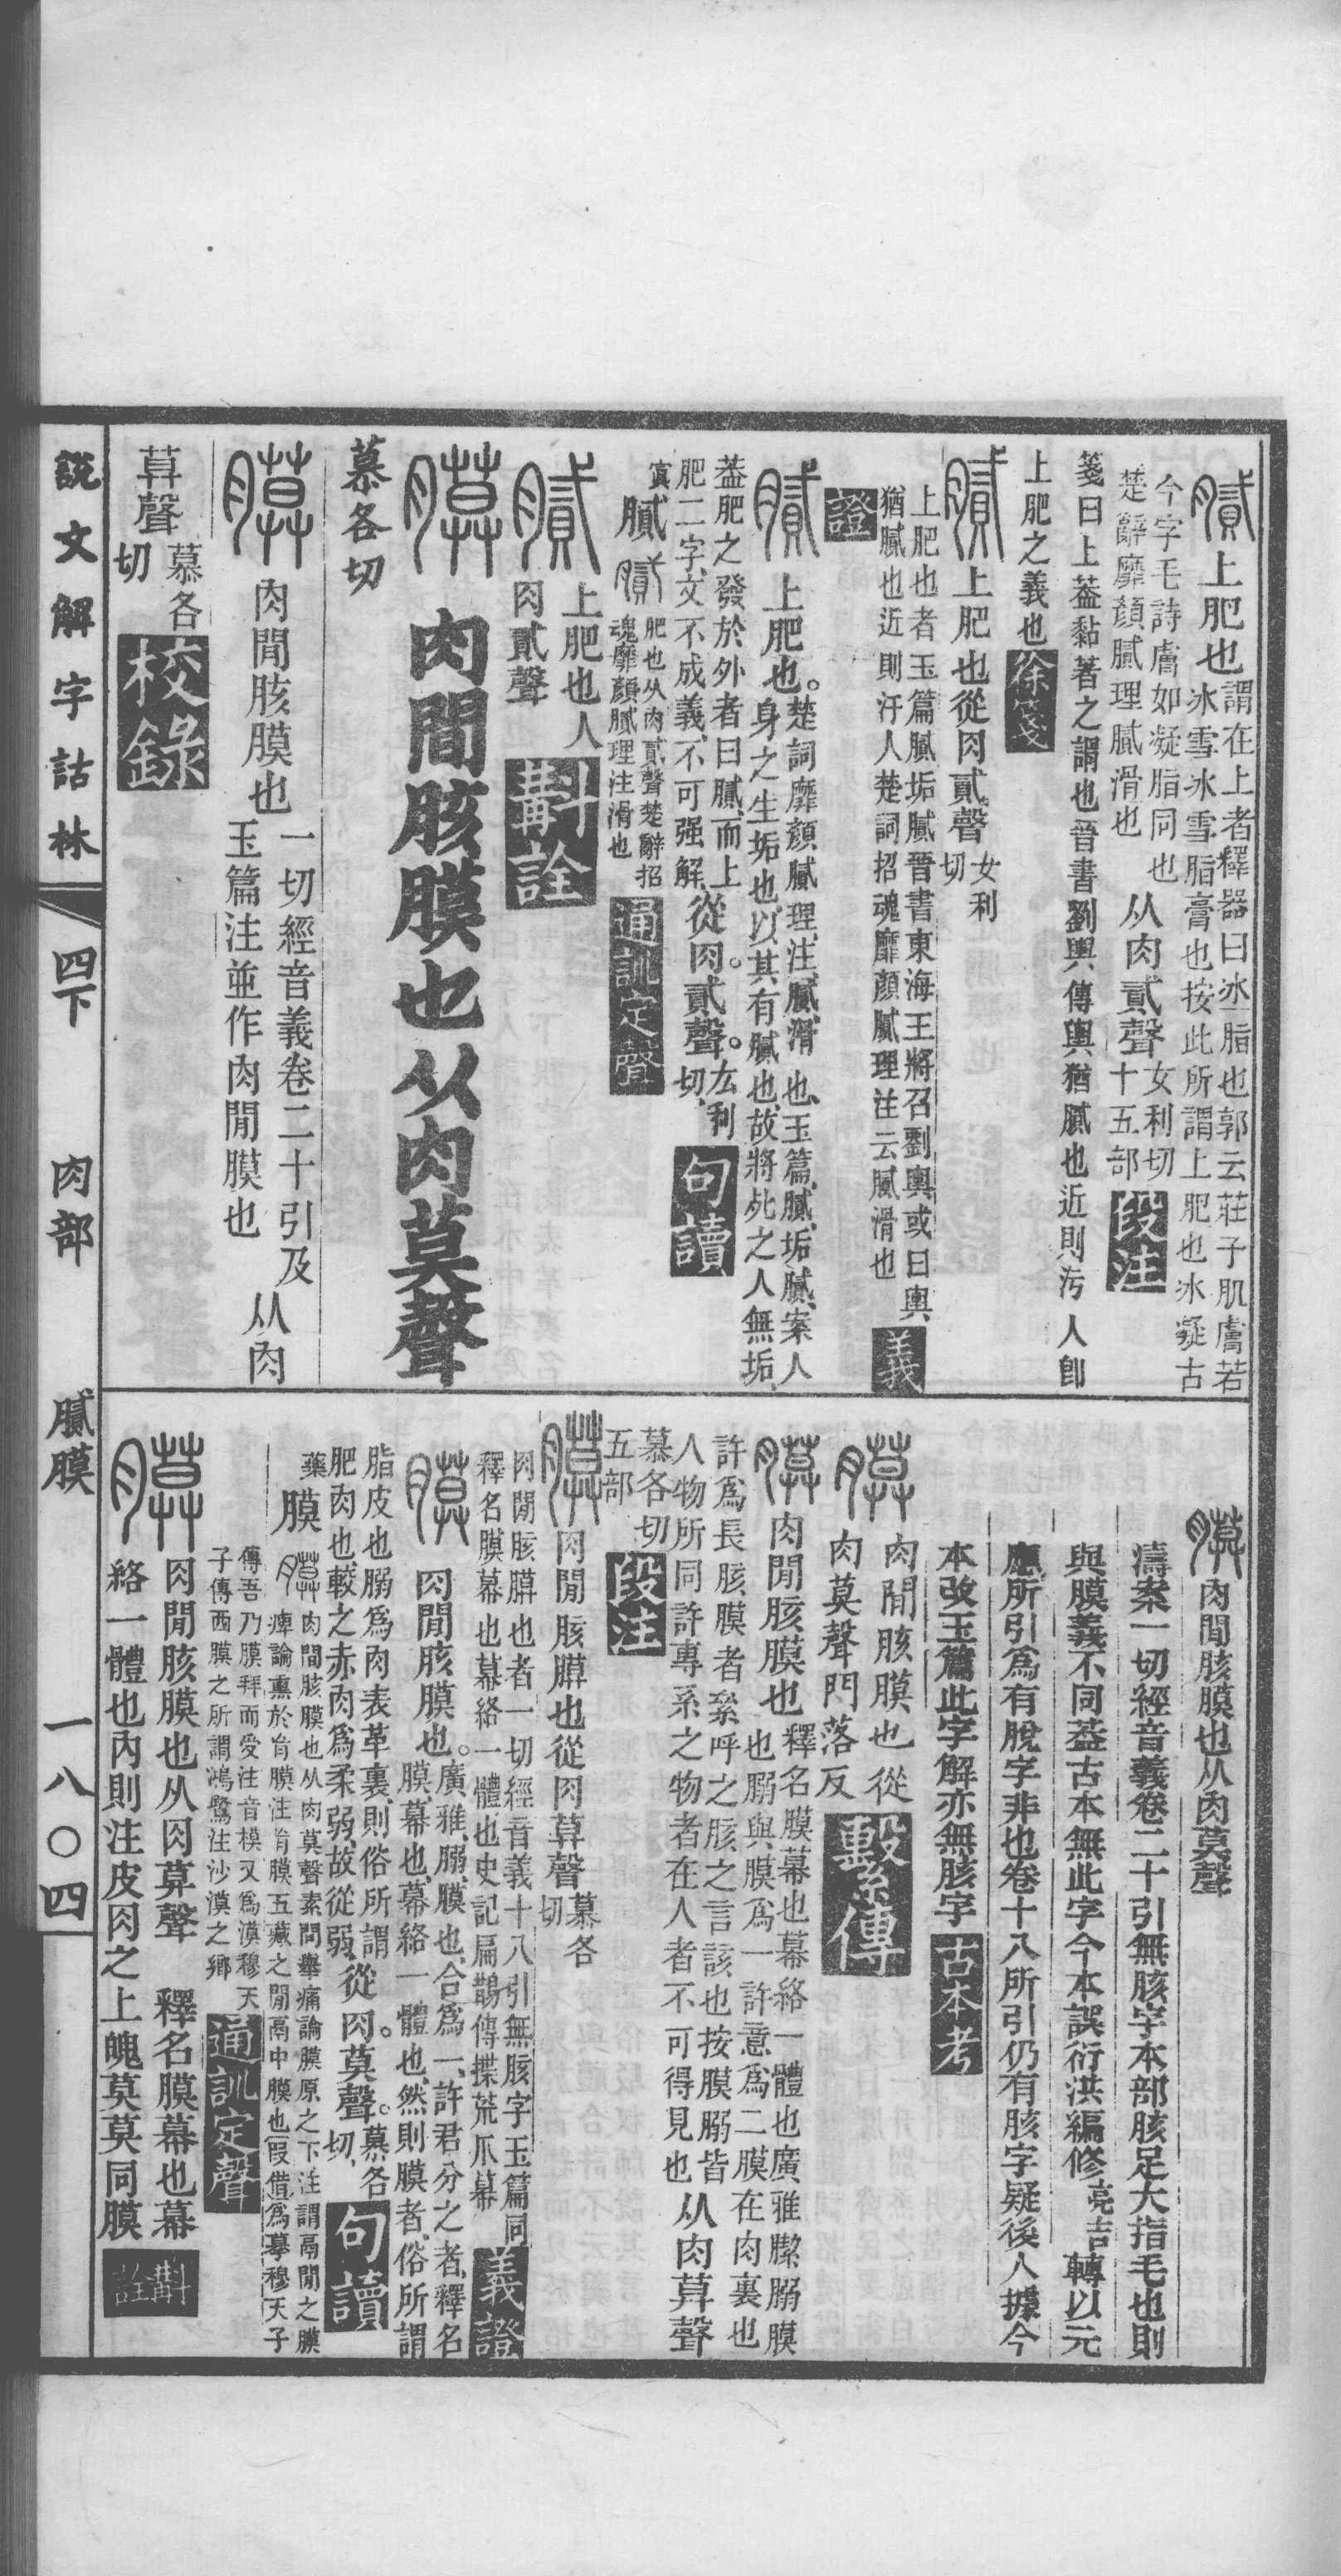 膩上肥也謂在上者釋器曰冰脂也郭云莊子肌膚若
冰雪冰雪脂膏也按此所謂上肥也冰凝古
今字毛詩膚如凝脂同也从肉貳聲女利切
楚辭靡顏膩理膩滑也十五部段注
箋曰上葢黏著之謂也晉書劉輿傳輿猶膩也近則汚人卽
上肥之義也徐箋
膩上肥也從肉貳聲女利切
上肥也者玉篇膩垢膩晉書東海王將召劉輿或曰輿
猶膩也近則汙人楚詞招魂靡顏膩理注云膩滑也義
證
膩上肥也。楚詞靡顏膩理、注、膩、滑也、玉篇、膩、垢膩、案人
身之生垢也、以其有膩也、故將死之人無垢、
葢肥之發於外者曰膩、而上
肥二字、文不成義、不可强解、從肉。貳聲。女利切、句讀
膩肥也从肉貳聲楚辭招
魂靡顏膩理注滑也通訓定聲
膩上肥也人
肉貳聲斠詮
膜肉閒胲膜也从肉莫聲
慕各切
膜肉閒胲膜也一切經音義卷二十引及
玉篇注並作肉閒膜也从肉
莫聲慕各切校錄
說文解字詁林 四下 肉部 膩膜 一八〇四
膜肉閒胲膜也从肉莫聲
濤案一切經音義卷二十引無胲字本部胲足大指毛也則
與膜義不同葢古本無此字今本誤衍洪編修亮吉轉以元
應所引爲有脫字非也卷十八所引仍有胲字疑後人據今
本改玉篇此字解亦無胲字古本考
膜肉閒胲膜也從
肉莫聲門落反繫傳
膜肉閒胲膜也釋名膜幕也幕絡一體也廣雅膜
也𦜉與膜爲一許意爲二膜在肉裏也
許爲長胲膜者絫呼之胲之言該也按膜𦜉皆
人物所同許專系之物者在人者不可得見也从肉莫聲
慕各切
五部段注
膜肉閒胲膜也從肉莫聲慕各切
肉閒胲膜也者一切經音義十八引無胲字玉篇同
釋名膜幕也幕絡一體也史記扁鵲傳揲荒爪幕義證
膜肉閒胲膜也。廣雅、𦜉、膜也、合爲一、許君分之者、釋名
膜、幕也、幕絡一體也、然則膜者、俗所謂
脂皮也、𦜉爲肉表革裏、則俗所謂
肥肉也、較之赤肉爲柔弱、故從弱、從肉。莫聲。慕各切、句讀
膜肉閒胲膜也从肉莫聲素問舉痛論膜原之下注謂鬲閒之膜
痺論熏於肓膜注肓膜五藏之閒鬲中膜也叚借爲摹穆天子
傳吾乃膜拜而受注音模又爲漠穆天
子傳西膜之所謂鴻鷺注沙漠之鄕通訓定聲
膜肉閒胲膜也从肉莫聲 釋名膜幕也幕
絡一體也內則注皮肉之上魄莫莫同膜斠詮